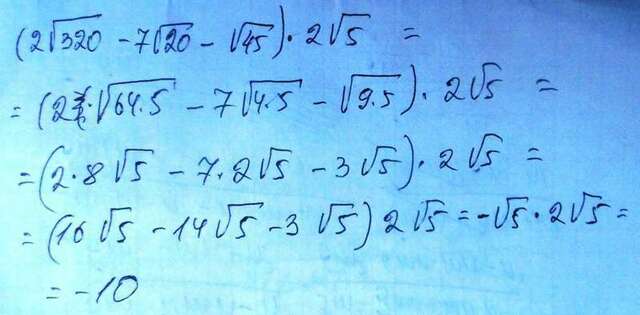 (2√320 - 7√20 - √45) · 2√5 =
= (2 · √64·5 - 7√4·5 - √9·5) · 2√5 =
= (2·8√5 - 7·2√5 - 3√5) · 2√5 =
= (16√5 - 14√5 - 3√5) 2√5 = -√5 · 2√5 =
= -10